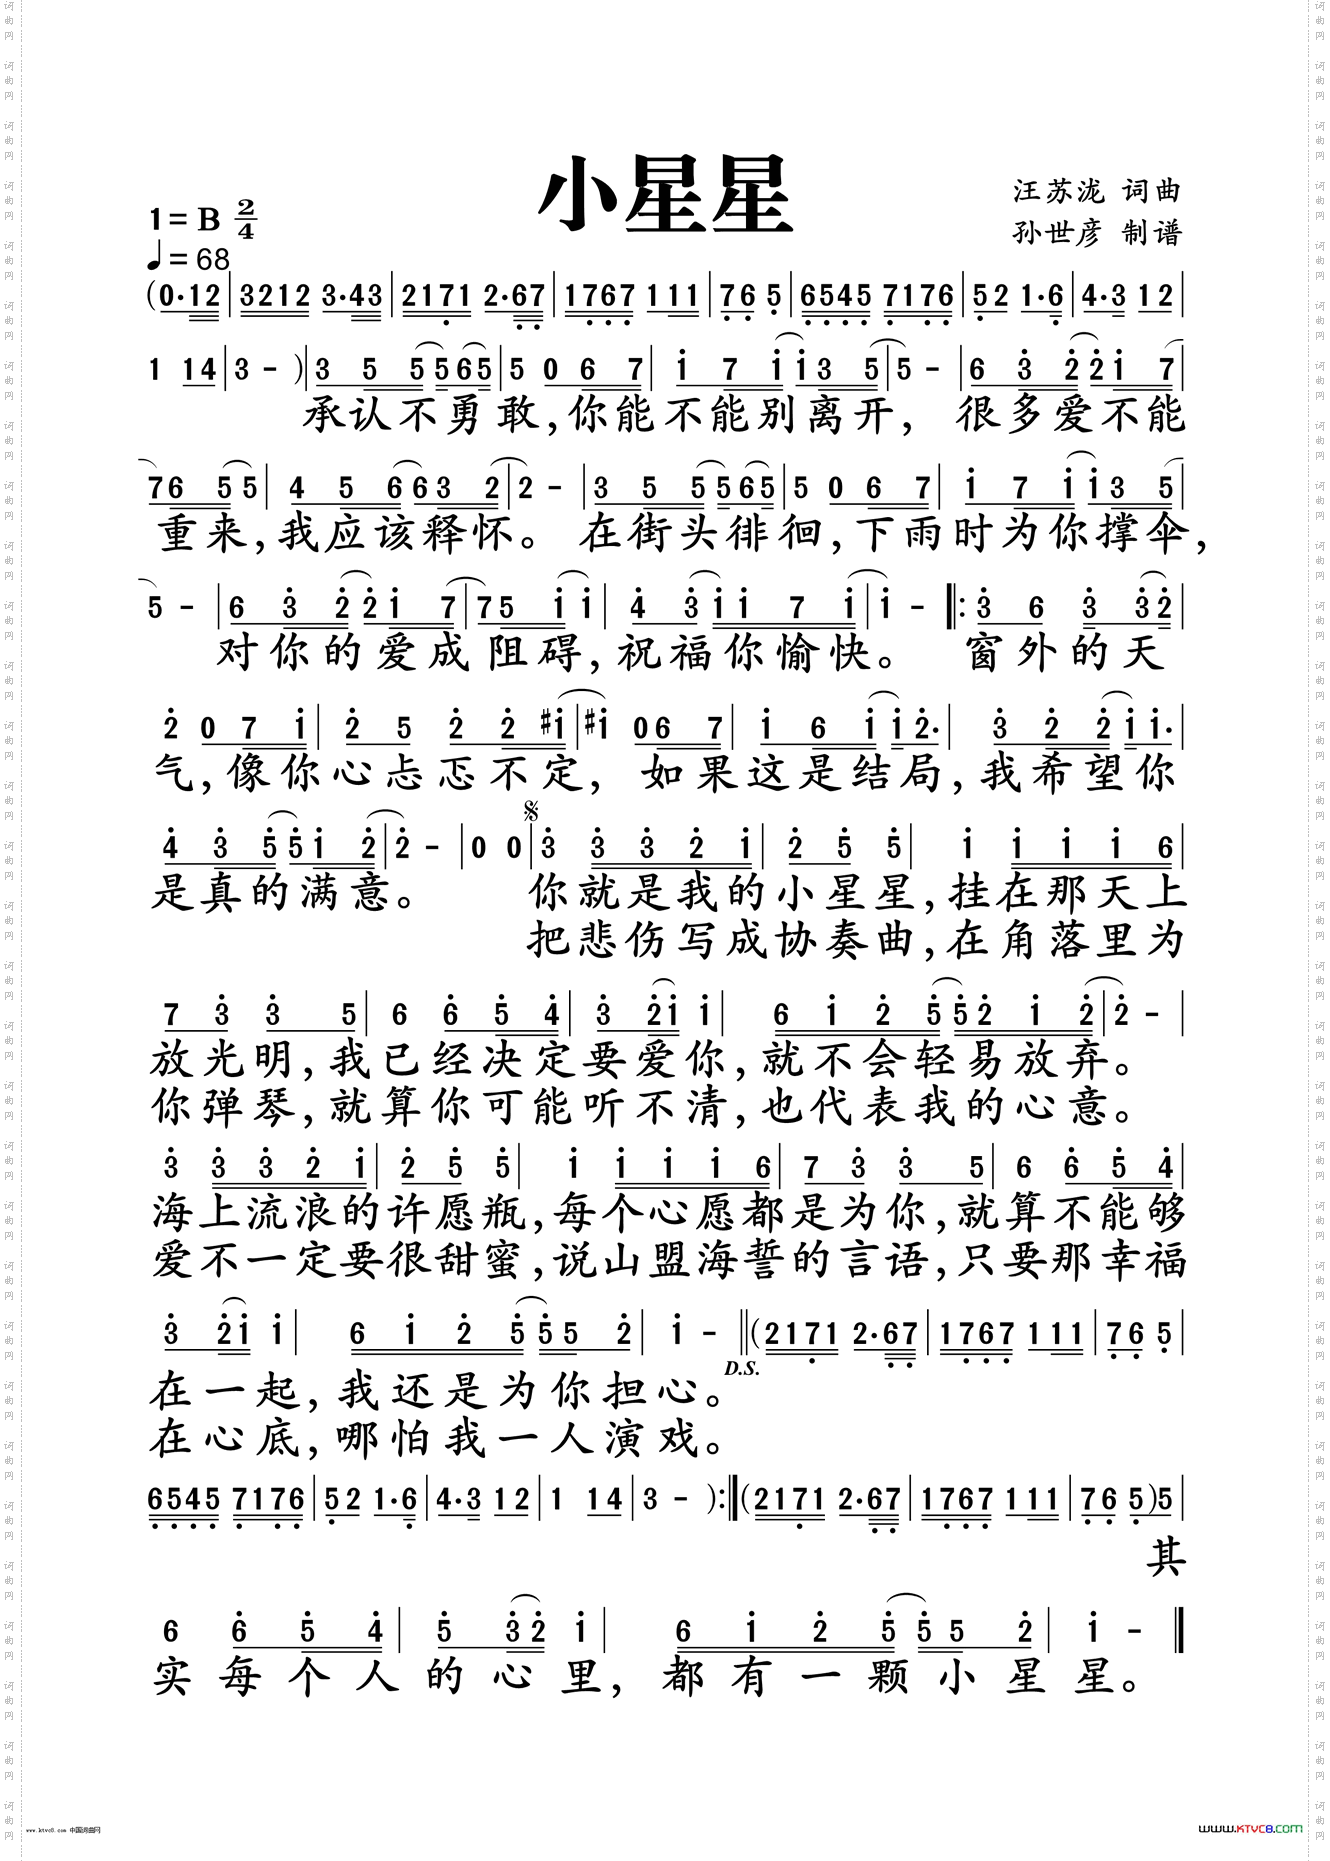 小星星
汪苏泷 词曲
孙世彦 制谱
1=B 2/4
♩=68
(0·12|3212 3·43|2171 2·67|1767 111|76 5|6545 7176|52 1·6|4·3 12|
1 14|3 - )|3 5 5565|5 0 6 7|1 7 1135|5 -|6 3 221 7|
承认不勇敢,你能不能别离开, 很多爱不能
76 55|4 5 6632|2 -|3 5 5565|5 0 6 7|1 7 1135|
重来,我应该释怀。 在街头徘徊,下雨时为你撑伞,
5 -|6 3 221 7|75 11|4 311 7 1|1 -|:3 6 3 32|
对你的爱成阻碍,祝福你愉快。 窗外的天
2 0 7 1|2 5 2 2 #1|#1 06 7|1 6 112·|3 2 211·|
气,像你心忐忑不定, 如果这是结局,我希望你
4 3 551 2|2 -|0 0|3 3 3 2 1|2 5 5|1 1 1 1 6|
是真的满意。 你就是我的小星星,挂在那天上
把悲伤写成协奏曲,在角落里为
7 3 3 5|6 6 5 4|3 21 1|6 1 2 552 1 2|2 -|
放光明,我已经决定要爱你,就不会轻易放弃。
你弹琴,就算你可能听不清,也代表我的心意。
3 3 3 2 1|2 5 5|1 1 1 1 6|7 3 3 5|6 6 5 4|
海上流浪的许愿瓶,每个心愿都是为你,就算不能够
爱不一定要很甜蜜,说山盟海誓的言语,只要那幸福
3 21 1|6 1 2 555 2|1 -||(2171 2·67|1767 111|76 5|
D.S.
在一起,我还是为你担心。
在心底,哪怕我一人演戏。
6545 7176|52 1·6|4·3 12|1 14|3 - ):||(2171 2·67|1767 111|76 5)5|
其
6 6 5 4|5 32 1|6 1 2 5 55 2|1 -||
实每个人的心里,都有一颗小星星。
www.ktvc8.com 中国词曲网
WWW.KTVC8.COM